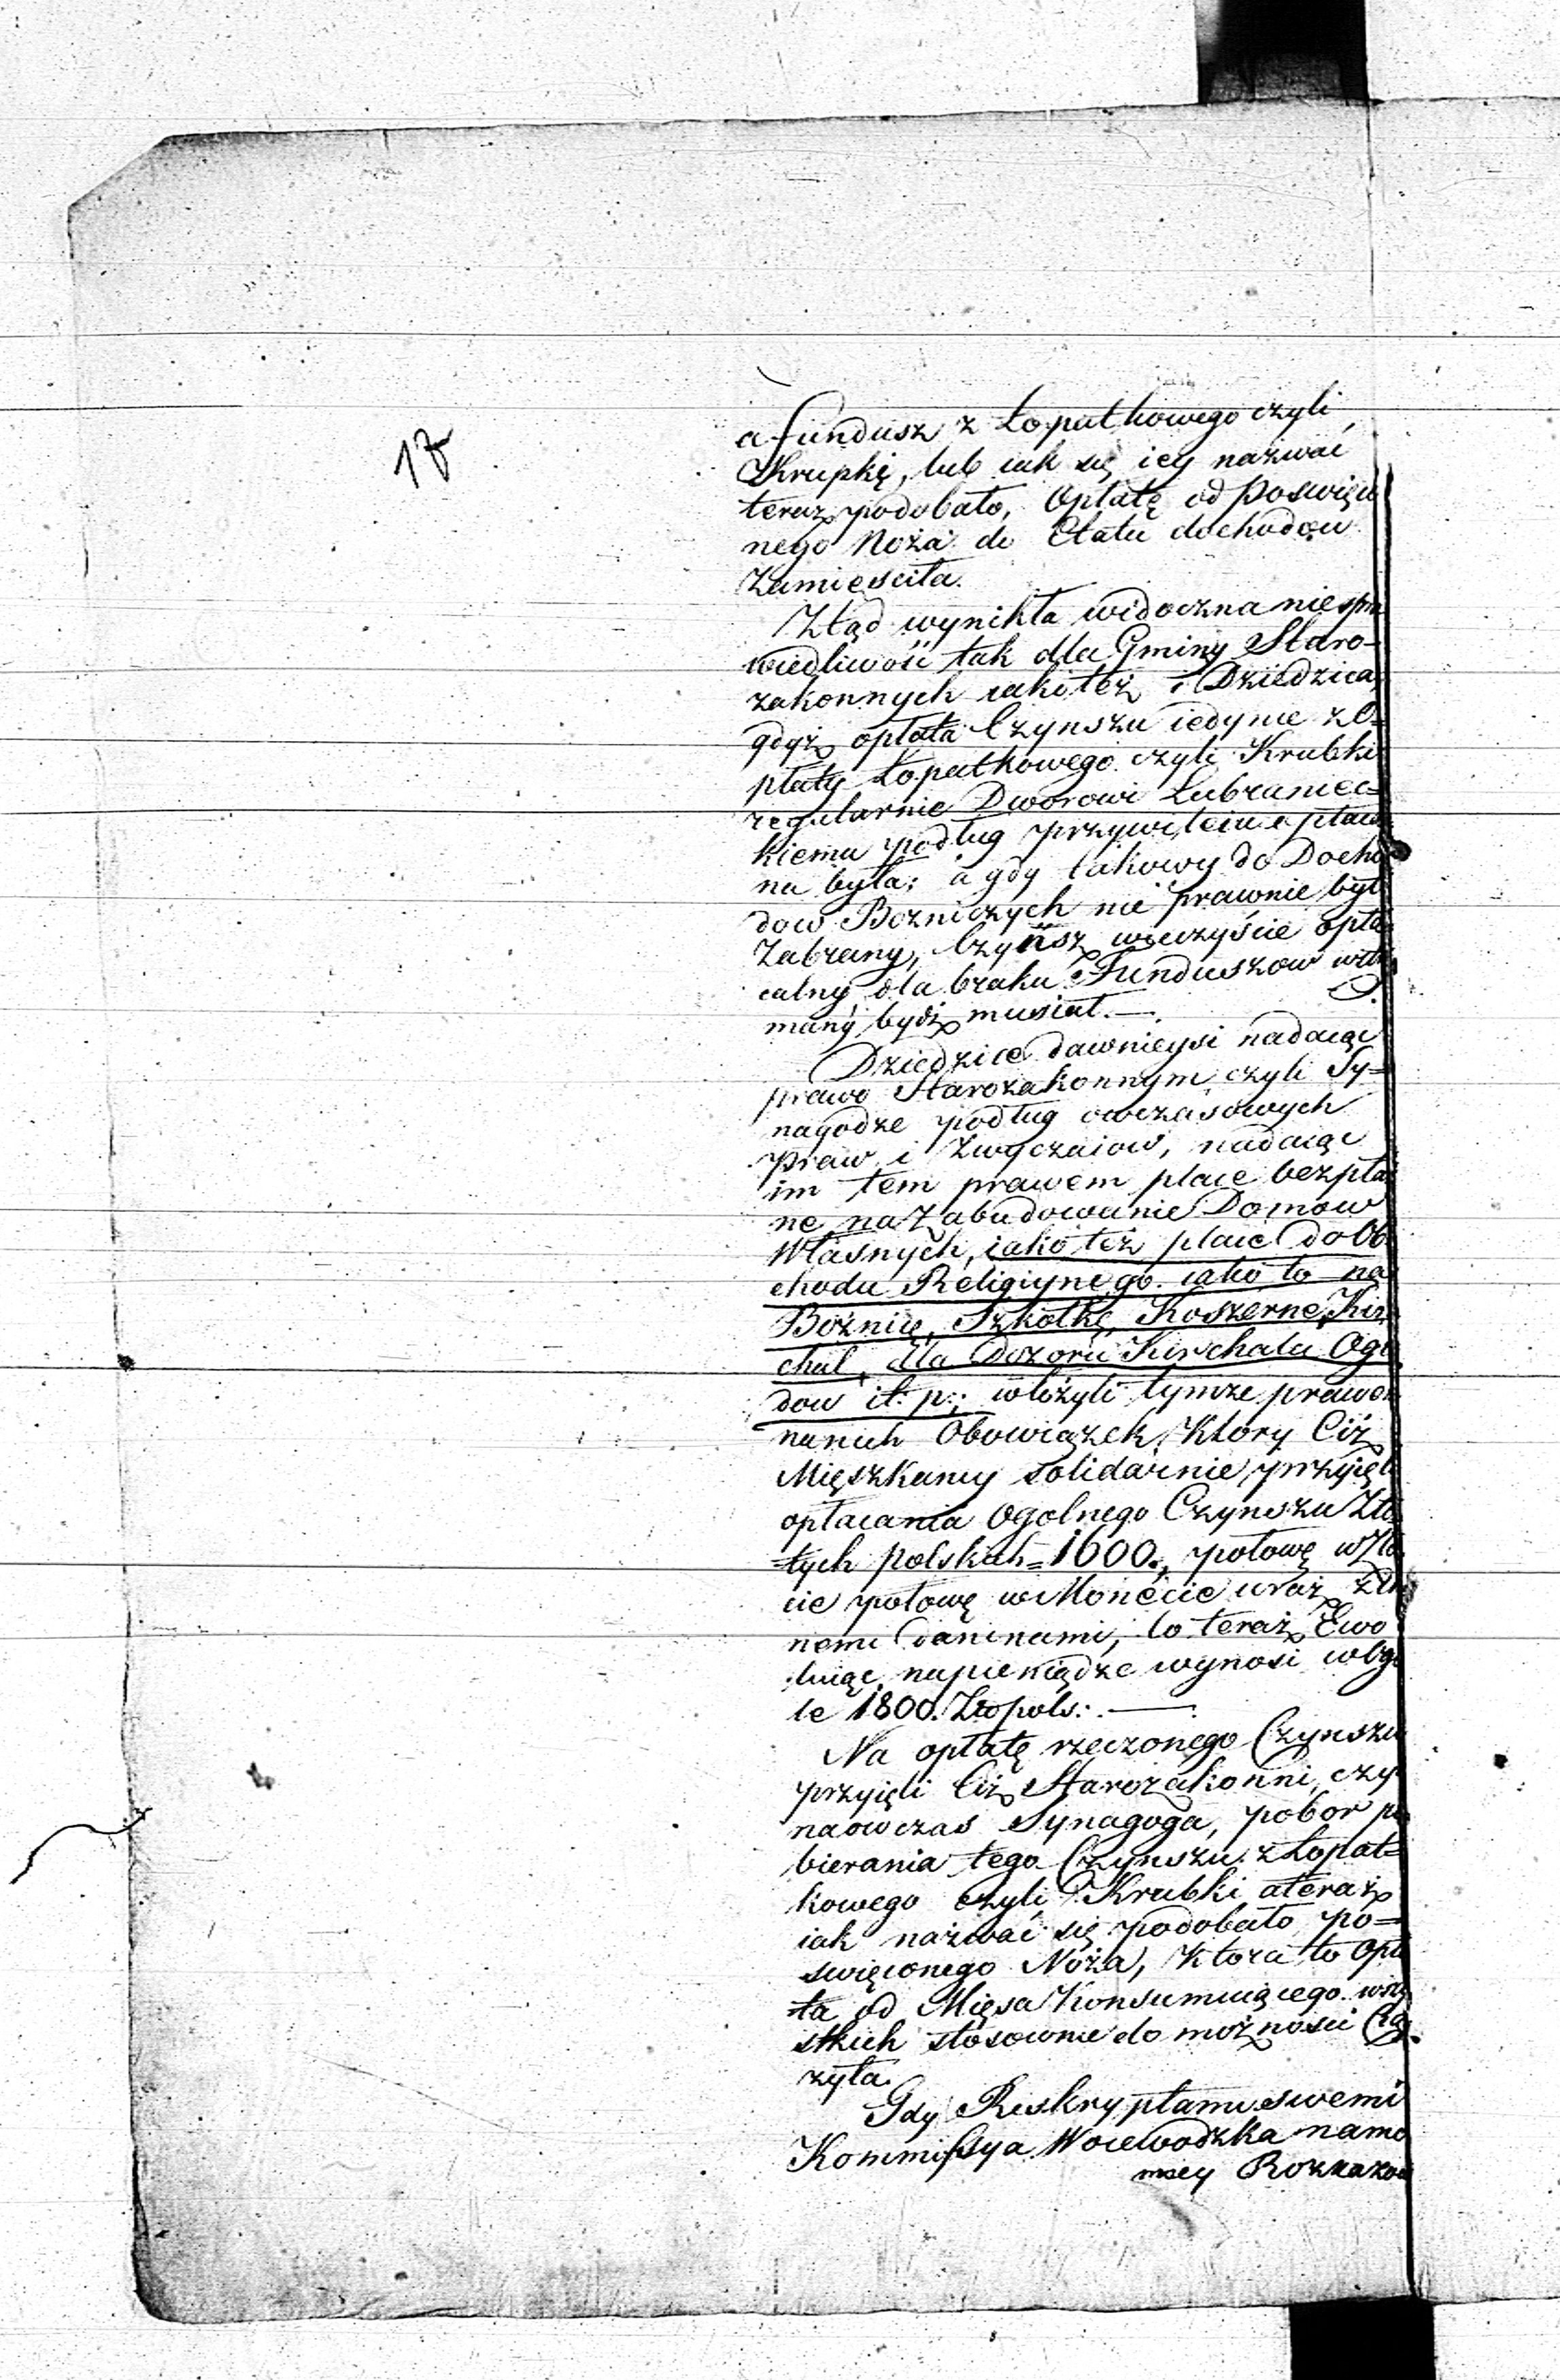 17
a fundusz z Łopatkowego czyli
Krupkę, lub iak się iey nazwać
teraz podobało, Opłatę od Poswięco
nego Noża do Etatu dochodow
Zamiesciła.
Ztąd wynikła widoczna niespra
wiedliwość tak dla Gminy Staro-
zakonnych iako też i Dziedzica,
gdyż opłata Czynszu iedynie z O=
płaty Łopatkowego czyli Krubki
regularnie Dworowi Lubraniec=
kiemu podług przywileiu opłaca
na była; a gdy takowy do Docho
dow Bozniczych nie prawnie był
Zabrany, Czyńsz wieczyście opła
calny dla braku Funduszow wstrzy
many bydź musiał. —.
Dziedzice dawnieysi nadaiąc
prawo Starozakonnym czyli Sy=
nagodze podług owczasowych
Praw i Zwyczaiow, nadaiąc
im tem prawem place bezpłat
ne na Zabudowanie Domow
Własnych, iako też place do Ob
chodu Religiynego. iako to na
Bożnię, Szkołkę, Koszerne, Kir
chul, dla Dozoru Kirchału Ogro
dow it: p:; włożyli tymze prawem
na nich Obowiązek, Który Ciż
Mięszkancy solidarnie przyięli
opłacania Ogolnego Czynszu Zło
tych polskich = 1600., połowę w Zło
cie połowę w Monecie wraz z In
nemi daninami, to teraz Ewo
luiąc na pieniądze wynosi w Ogo
le 1800. Zło pols: —.
Na opłatę rzeczonego Czynszu
przyięli Ciż Starozakonni, czy
naowczas Synagoga, pobor po
bierania tego Czynszu z Łopat=
kowego czyli Krubki a teraz
iak nazwać się podobało po=
swięconego Noża, Ktora to Opła
ta od Mięsa Konsumuiącego wszy
stkich stosownie do możności Cią
żyła.
Gdy Reskryptami swemi
Kommissya Woiewodzka namo
mocy Rozkazow